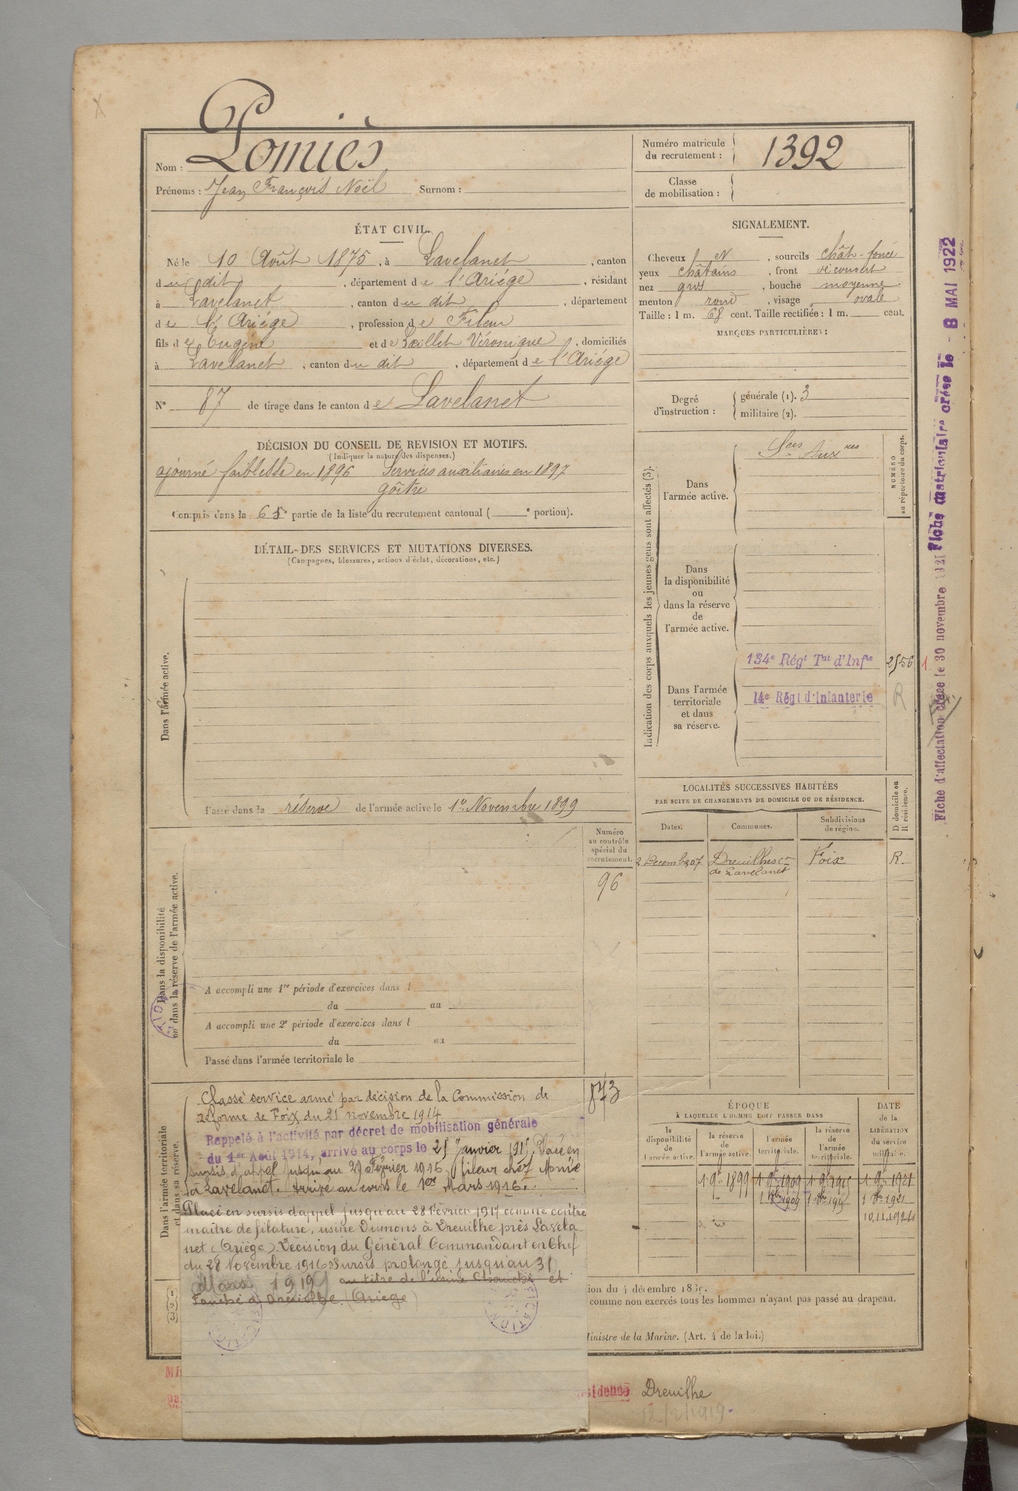 Nom : Lomiès
Prénoms : Jean François Noël Surnom :
Numéro matricule du recrutement : 1392
Classe de mobilisation :
ÉTAT CIVIL.
Né le 10 Août 1875, à Lavelanet, canton
du dit, département de l'Ariége, résidant
à Lavelanet, canton du dit, département
de l'Ariége, profession de Fileur
fils de Eugène et de Véronique, domiciliés
à Lavelanet, canton du dit, département de l'Ariége
N° 87 de tirage dans le canton de Lavelanet
SIGNALEMENT.
Cheveux N, sourcils chât-foncé
yeux châtains, front découvert
nez gros, bouche moyenne
menton rond, visage ovale
Taille : 1 m. 68 cent. Taille rectifiée : 1 m. cent.
MARQUES PARTICULIÈRES :
Degré d'instruction : générale (1). 3
militaire (2).
DÉCISION DU CONSEIL DE REVISION ET MOTIFS.
(Indiquer la nature des dispenses.)
ajourné faiblesse en 1896 Services auxiliaires en 1897
goître
Compris dans la 6e partie de la liste du recrutement cantonal ( e portion).
DÉTAIL DES SERVICES ET MUTATIONS DIVERSES.
(Campagnes, blessures, actions d'éclat, décorations, etc.)
Dans l'armée active.
Passé dans la réserve de l'armée active le 1er Novembre 1899
Indication des corps auxquels les jeunes gens sont affectés (3).
NUMÉRO au répertoire du corps.
Dans l'armée active.
Dans la disponibilité ou dans la réserve de l'armée active.
Dans l'armée territoriale et dans sa réserve.
134e Régt Tal d'Infie
14e Régt d'Infanterie
R
LOCALITÉS SUCCESSIVES HABITÉES
PAR SUITE DE CHANGEMENTS DE DOMICILE OU DE RÉSIDENCE.
Dates. Communes. Subdivisions de région. D domicile ou R résidence.
2 Decemb 07 Dreuilhe con de Lavelanet Foix R.
Numéro au contrôle spécial du recrutement.
96
Dans la disponibilité ou dans la réserve de l'armée active.
A accompli une 1re période d'exercices dans l
du au
A accompli une 2e période d'exercices dans l
du au
Passé dans l'armée territoriale le
Dans l'armée territoriale et dans sa réserve.
873
Classé service armé par décision de la Commission de
réforme de Foix du 21 novembre 1914
Rappelé à l'activité par décret de mobilisation générale
du 1er Août 1914, arrivé au corps le 25 Janvier 1915, Placé en
sursis d'appel jusqu'au 29 Février 1916, fileur chez
à Lavelanet. Arrivé au corps le 1er Mars 1916.
Placé en sursis d'appel jusqu'au 28 Février 1917 comme contre
maître de filature, usine Dumons à Dreuilhe près Lavela
net (Ariége) Décision du Général Commandant en Chef
du 28 Novembre 1916 Sursis prolongé jusqu'au 31
Mars 1919 au titre de l'usine et
à Dreuilhe (Ariége)
ÉPOQUE
À LAQUELLE L'HOMME DOIT PASSER DANS
la disponibilité de l'armée active. la réserve de l'armée active. l'armée territoriale. la réserve de l'armée territoriale.
DATE de la LIBÉRATION du service militaire.
1 9bre 1899 1 9bre 1909 1 9bre 1915 1 9bre 1921
10.11.1921
comme non exercés tous les hommes n'ayant pas passé au drapeau.
Ministre de la Marine. (Art. 4 de la loi.)
Dreuilhe
12/2/1919.
Fiche d'affectation créée le 30 novembre 1921 Fiche matriculaire créée le - 8 MAI 1922